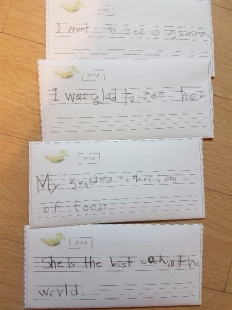 I went to see a
I was glad to see her
My grandma
of food.
She is the best cook in the
world.